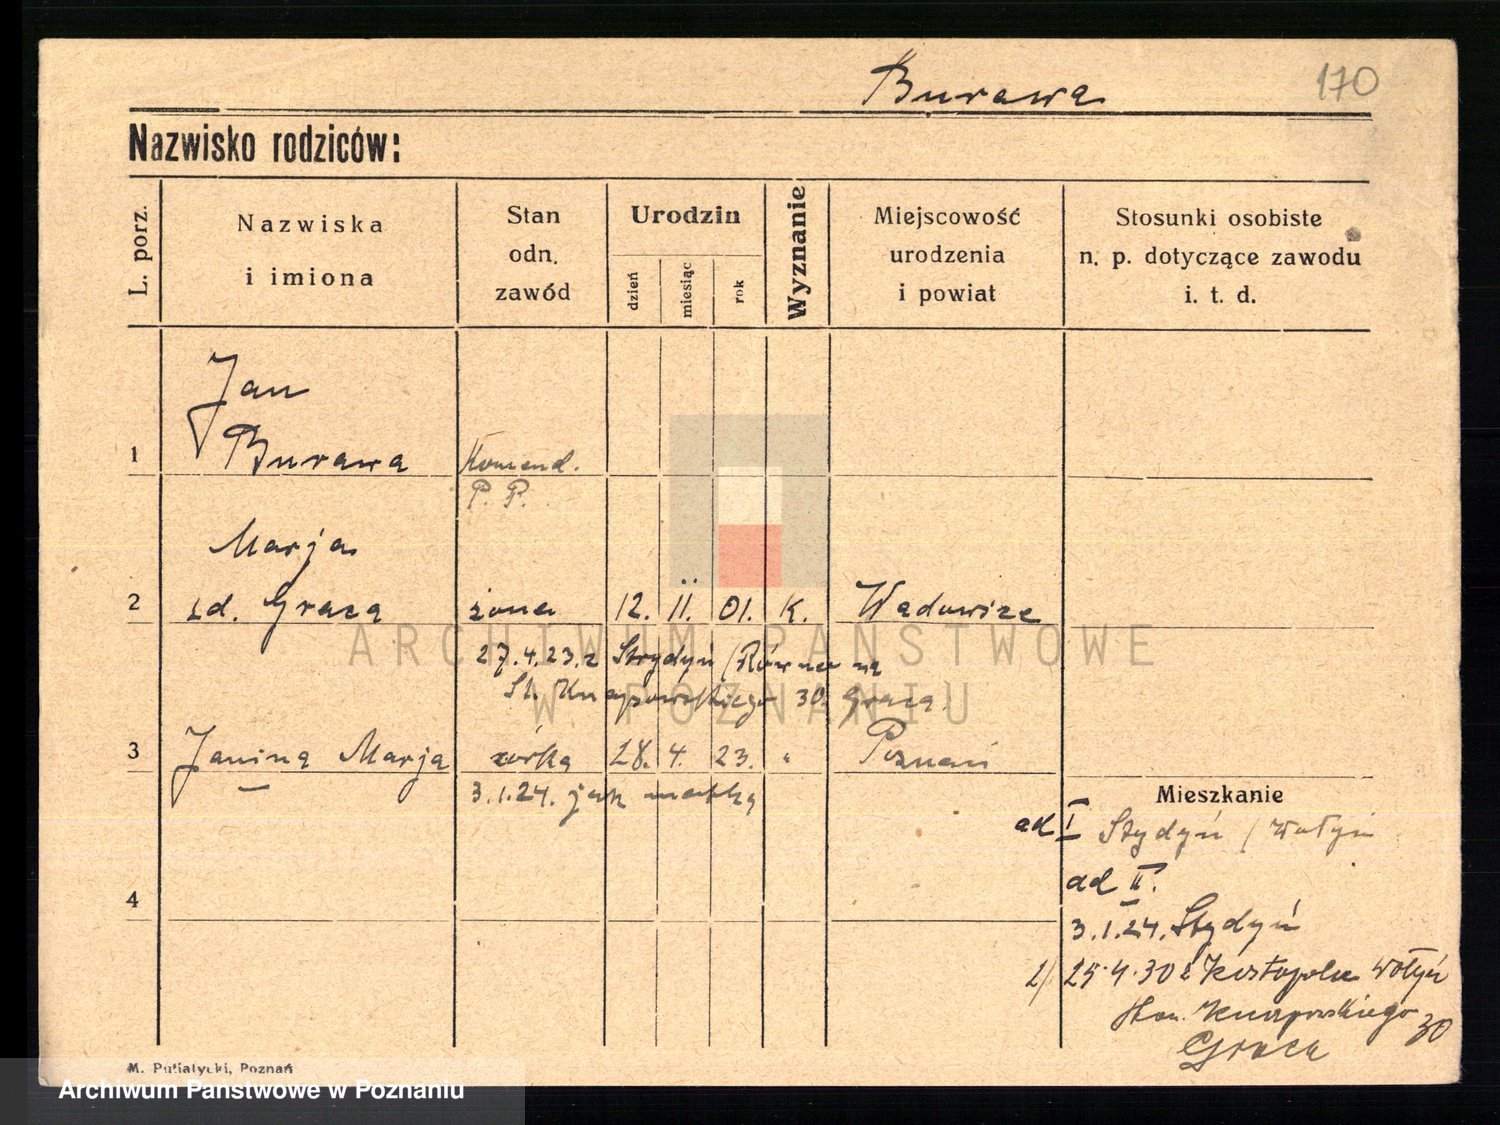 Burawa
170
Nazwisko rodziców:
L. porz.
Nazwiska
i imiona
Stan
odn.
zawód
Urodzin
dzień
miesiąc
rok
Wyznanie
Miejscowość
urodzenia
i powiat
Stosunki osobiste
n. p. dotyczące zawodu
i. t. d.
Jan
1 Burawa Komend.
P. P.
Marja
2 zd. Graca żona 12. II. 01. K. Wadowice
27.4.23. z Stydyń (Równo na
St. Knapowskiego 30 Graca.
3 Janina Marja córka 28. 4. 23. " Poznań
3.1.24. jak matka
Mieszkanie
ad I Stydyń / Wołyń
ad II.
4
3.1.24. Stydyń
2/ 25.4.30 z Kostopola Wołyń
Knapowskiego 30
Graca
M. Putiatycki, Poznań
ARCHIWUM PAŃSTWOWE
W POZNANIU
Archiwum Państwowe w Poznaniu